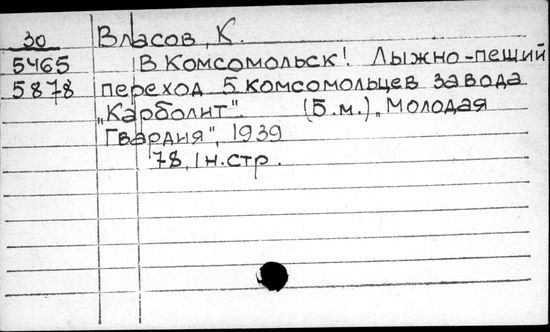 30 Власов, К.
5465 В Комсомольск! Лыжно-пеший
5878 переход 5 комсомольцев завода
„Карболит". (Б.м.) „Молодая
Гвардия", 1939
78, 1 н. стр.